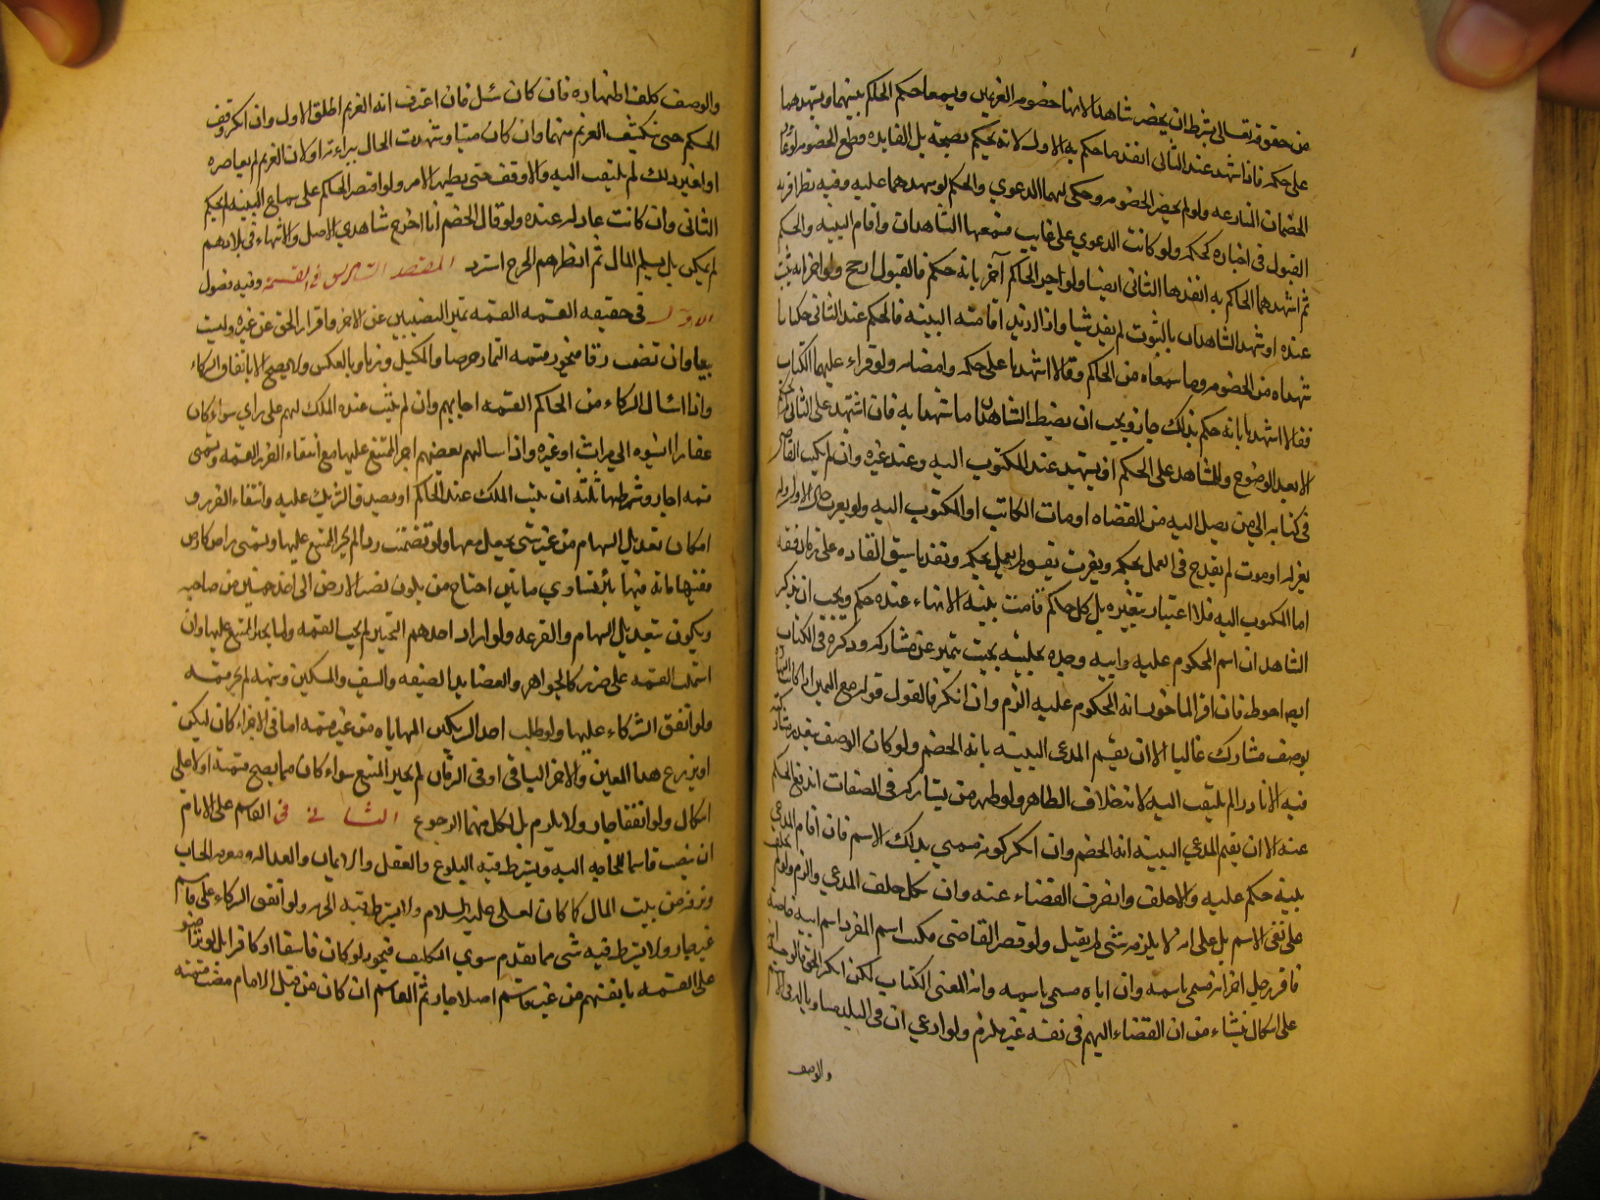 من حقوقه تعالى بشرط ان يحضر شاهدا الانها خصومه الغريمين ويسمعا حكم الحاكم بينهما ويشهدهما
على حكمه فاذا شهدا عند الثانى انفذ ما حكم به الاول لا انه يحكم بصحته بل الفايده قطع الخصومه لو عاود
الخصمان المنازعه ولو لم يحضرا الخصومه وحكى لهما الدعوي والحكم واشهدهما عليه وفيه نظر اقربه
القبول فى اخباره كحكمه ولو كانت الدعوي على غايب فسمعها الشاهدان واقام البينه والحكم
ثم اشهدهما الحاكم به انفذها الثانى ايضا ولو اخبر الحاكم آخر بانه حكم فالقبول ارجح ولو اخر انه ثبت
عنده او شهد الشاهدان بالثبوت لم يفد شيا واذا اريد اقامته البينه فالحكم عند الثانى حكيا ما
شهداه من الخصومه وما سمعاه من الحاكم وقالا اشهدنا على حكمه وامضاه ولو قراء عليهما الكتاب
فقالا اشهدنا بانه حكم بذلك جاز ويجب ان يضبط الشاهدان ما شهدا به فان اشتبه على الثانى لم يحكم
الا بعد الوضوح وللشاهد على الحكم ان يشهد عند المكتوب اليه وعند غيره وان لم يكتب القاضى
فى كتابه الى من يصل اليه من القضاه او مات الكاتب او المكتوب اليه ولو تغيرت حال الاول
بعزل او موت لم يقدح فى العمل بحكمه وبغيرت بفسق لم يعمل بحكمه ونقذ ما سبق انفاذه على زمان فسقه
اما المكتوب اليه فلا اعتبار بتغيره بل كل حاكم قامت بينة الانهاء عنده حكم ويجب ان يذكر
الشاهدان اسم المحكوم عليه وابيه وجده بحليته بحيث يتميز عن مشاركه وذكره فى الكتاب
ايضا احوط فان اقر الماخوذ انه المحكوم عليه الزم وان انكر فالقول قوله مع اليمين ان كانت الشهادة
بوصف مشارك غالبا الا ان يقيم المدعى البينه بانه الخصم ولو كان الوصف يتعذر مشاركته
فيه الا نادرا لم يلتفت اليه لانه خلاف الظاهر ولو ظهر من يشاركه فى الصفات اندفع الحكم
عنه الا ان يقيم المدعى البينه انه الخصم وان انكر كونه مسمى بذلك الاسم فان اقام المدعى
بينه حكم عليه والا حلف وانصرف القضاء عنه وان نكل حلف المدعى والزم ولو لم يحلف
على نفى الاسم بل على انه لا يلزمه شى لم يقبل ولو قصر القاضى فكتب اسم المقر باسم ابيه خاصة
فاقر رجل اخر انه مسمى باسمه وان اباه مسمى باسمه وانه المعنى بالكتاب لكن انكر الحق فالوجه
على اشكال ينشاء من ان القضاء المبهم فى نفسه غير ملزم ولو ادعى ان فى البلد مساويا له فى الاسم
والوصف
والوصف كلف اظهاره فان كان سئل فان اعترف انه الغريم اطلق الاول وان انكر وقف
الحكم حتى ينكشف الغريم منهما وان كان ميتا وشهدت الحال ببراءته اما لان الغريم لم يعاصره
او لغير ذلك لم يلتفت اليه والا وقف حتى يظهر الامر ولو اقتصر الحاكم على سماع البينه لم يحكم
الثانى وان كانت عادله عنده ولو قال الخصم انا اخرج شاهدي الاصل والانهاء فى بلادهم
لم يمكن بل يسلم المال ثم ان ظهر الجرح استرد المقصد الثامن فى القسمه وفيه فصول
الاول فى حقيقه القسمه القسمه تميز النصيبين عن الاخر وافراز الحق عن غيره وليست
بيعا وان تضمنت ردا فيجوز قسمه الثمار خرصا والمكيل وزنا وبالعكس ولا يصح الا باتفاق الشركاء
واذا سال الشركاء من الحاكم القسمه اجابهم وان لم يثبت عنده الملك لهم على راي سواء كان
عقارا نسبوه الى ميراث او غيره واذا سالهم بعضهم اجبر الممتنع عليها مع انتفاء الضرر القسمه وتسمى
قسمه اجبار وشرطها ثلثه ان يثبت الملك عند الحاكم او يصدق الشريك عليه وانتفاء الضرر و
امكان تعديل السهام من غير شى يجعل معها ولو تضمنت ردا لم يجبر الممتنع عليها وتسمى تراض كارض
قيمتها مائه فيها بئر تساوي مائتين احتاج من يكون نصيبه الارض الى اخذ خمسين من صاحبه
ويكون بتعديل السهام والقرعه ولو اراد احدهم التخيير لم يجب القسمه ولما يجبر الممتنع عليها وان
اشتملت القسمه على ضرر كالجواهر والعضايد الضيقه والسيف والسكين وشبهه لم يجز قسمته
ولو اتفق الشركاء عليها ولو طلب احد الشريكين المهاياه من غير قسمه اما فى الاجزاء كان يسكن
او يزرع هذا المعين والاخر الباقى او فى الزمان لم يجبر الممتنع سواء كان مما يصح قسمته او لا على
اشكال ولو اتفقا جاز ولا يلزم بل لكل منهما الرجوع الثانى فى القاسم على الامام
ان ينصب قاسما للحاجه اليه ويشترط فيه البلوغ والعقل والايمان والعداله ومعرفه الحساب
ورزقه من بيت المال كما كان لعلى عليه السلام ولا يشترط فيه الحريه ولو اتفق الشركاء على قاسم
غيره جاز ولا يشترط فيه شى مما تقدم سوي التكليف فيجوز لو كان فاسقا او كافرا بل لو تراضوا
على القسمه بانفسهم من غير قاسم اصلا جاز ثم القاسم ان كان من قبل الامام مضت قسمته